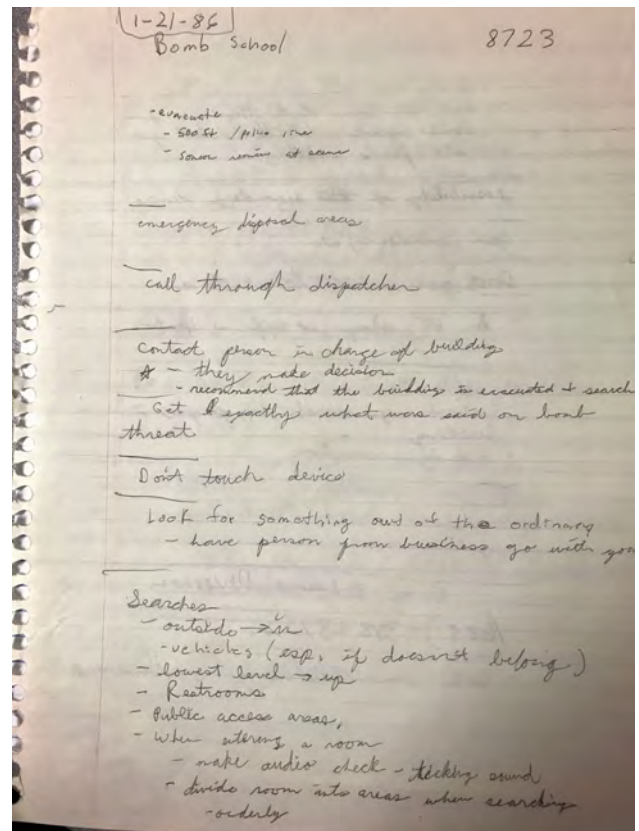 1-21-86
Bomb School 8723
- evacuate
- 500 ft / police line
- remain at scene
emergency disposal areas
call through dispatcher
Contact person in charge of building
☆ - they make decision
- recommend that the building is evacuated + search
Get exactly what was said on bomb
threat
Don't touch device
Look for something out of the ordinary
- have person from business go with you
Searches
- outside → in
- vehicles (esp. if doesn't belong)
- lowest level → up
- Restrooms
- Public access areas,
- when entering a room
- make audio check - ticking sound
- divide room into areas when searching
- orderly